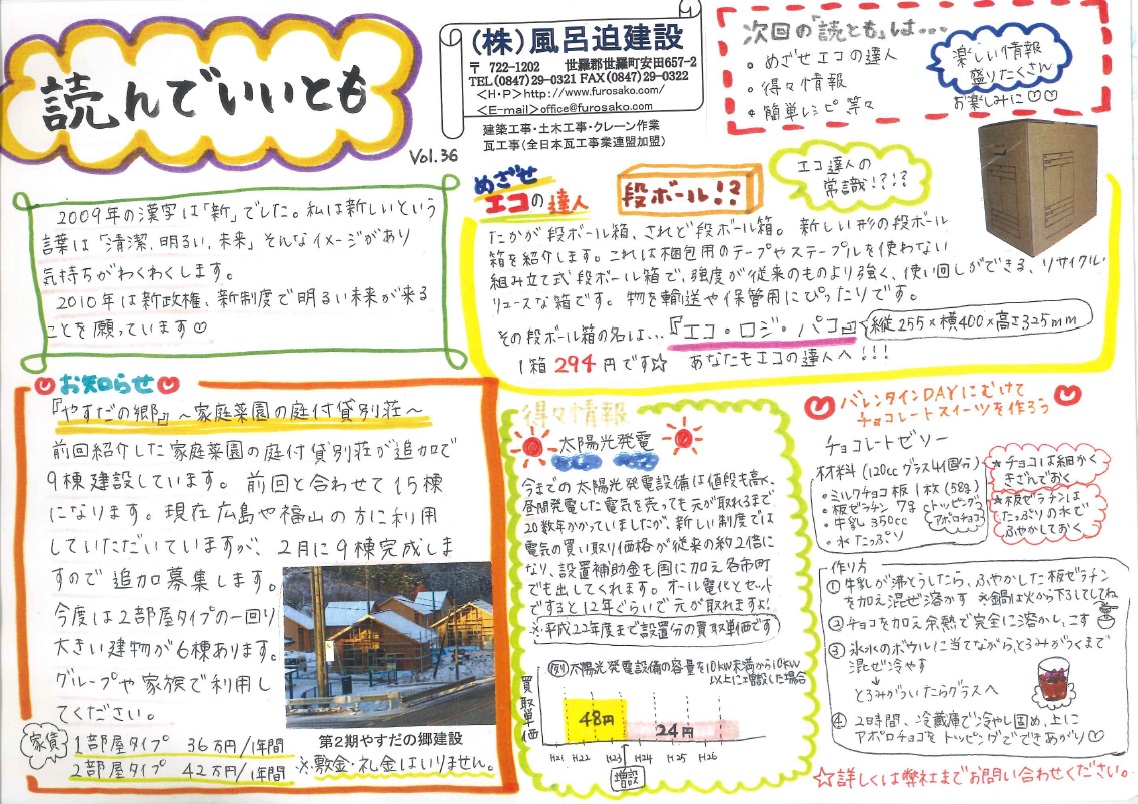 読んでいいとも
Vol.36
(株)風呂迫建設
〒722-1202 世羅郡世羅町安田657-2
TEL(0847)29-0321 FAX(0847)29-0322
<H・P>http://www.furosako.com/
<E-mail>office@furosako.com
建築工事・土木工事・クレーン作業
瓦工事(全日本瓦工事業連盟加盟)
次回の「読とも」は・・・
・めざせエコの達人
・得々情報
・簡単レシピ 等々
楽しい情報
盛りたくさん
お楽しみに♡♡
2009年の漢字は「新」でした。私は新しいという
言葉は「清潔、明るい、未来」そんなイメージがあり
気持ちがわくわくします。
2010年は新政権、新制度で明るい未来が来る
ことを願っています
めざせ
エコの達人
段ボール!?
エコ達人の
常識!?!?
たかが段ボール箱、されど段ボール箱。新しい形の段ボール
箱を紹介します。これは梱包用のテープやステープルを使わない
組み立て式段ボール箱で、強度が従来のものより強く、使い回しができる、リサイクル・
リユースな箱です。物を輸送や保管用にぴったりです。
その段ボール箱の名は…『エコ・ロジ・パコ』
縦255×横400×高さ325mm
1箱294円です☆ あなたもエコの達人へ!!!
お知らせ
『やすだの郷』~家庭菜園の庭付貸別荘~
前回紹介した家庭菜園の庭付貸別荘が追加で
9棟建設しています。前回と合わせて15棟
になります。現在広島や福山の方に利用
していただいていますが、2月に9棟完成しま
すので追加募集します。
今度は2部屋タイプの一回り
大きい建物が6棟あります。
グループや家族で利用し
てください。
家賃
1部屋タイプ 36万円/1年間
2部屋タイプ 42万円/1年間
第2期やすだの郷建設
※敷金・礼金はいりません。
得々情報
太陽光発電
今までの太陽光発電設備は値段も高く、
昼間発電した電気を売っても元が取れるまで
20数年かかっていましたが、新しい制度では
電気の買い取り価格が従来の約2倍に
なり、設置補助金も国に加え各市町
でも出してくれます。オール電化とセット
ですると12年ぐらいで元が取れますよ!
※平成22年度まで設置分の買取単価です
例)太陽光発電設備の容量を10kw未満から10kw
以上に増設した場合
買取単価
48円
24円
H21 H22 H23 H24 H25 H26
増設
バレンタインDAYにむけて
チョコレートスイーツを作ろう
チョコレートゼリー
材料(120ccグラス4個分)
・ミルクチョコ板1枚(58g)
・板ゼラチン 7g
・牛乳 350cc
・氷 たっぷり
トッピング
アポロチョコ
★チョコは細かく
きざんでおく
★板ゼラチンは
たっぷりの水で
ふやかしておく
作り方
①牛乳が沸とうしたら、ふやかした板ゼラチン
を加え混ぜ溶かす ※鍋は火から下ろしてしてね
②チョコを加え余熱で完全に溶かし、こす
③氷水のボウルに当てながら、とろみがつくまで
混ぜ冷やす
↓
とろみがついたらグラスへ
④2時間、冷蔵庫で冷やし固め、上に
アポロチョコをトッピングでできあがり♡
☆詳しくは弊社までお問い合わせください。